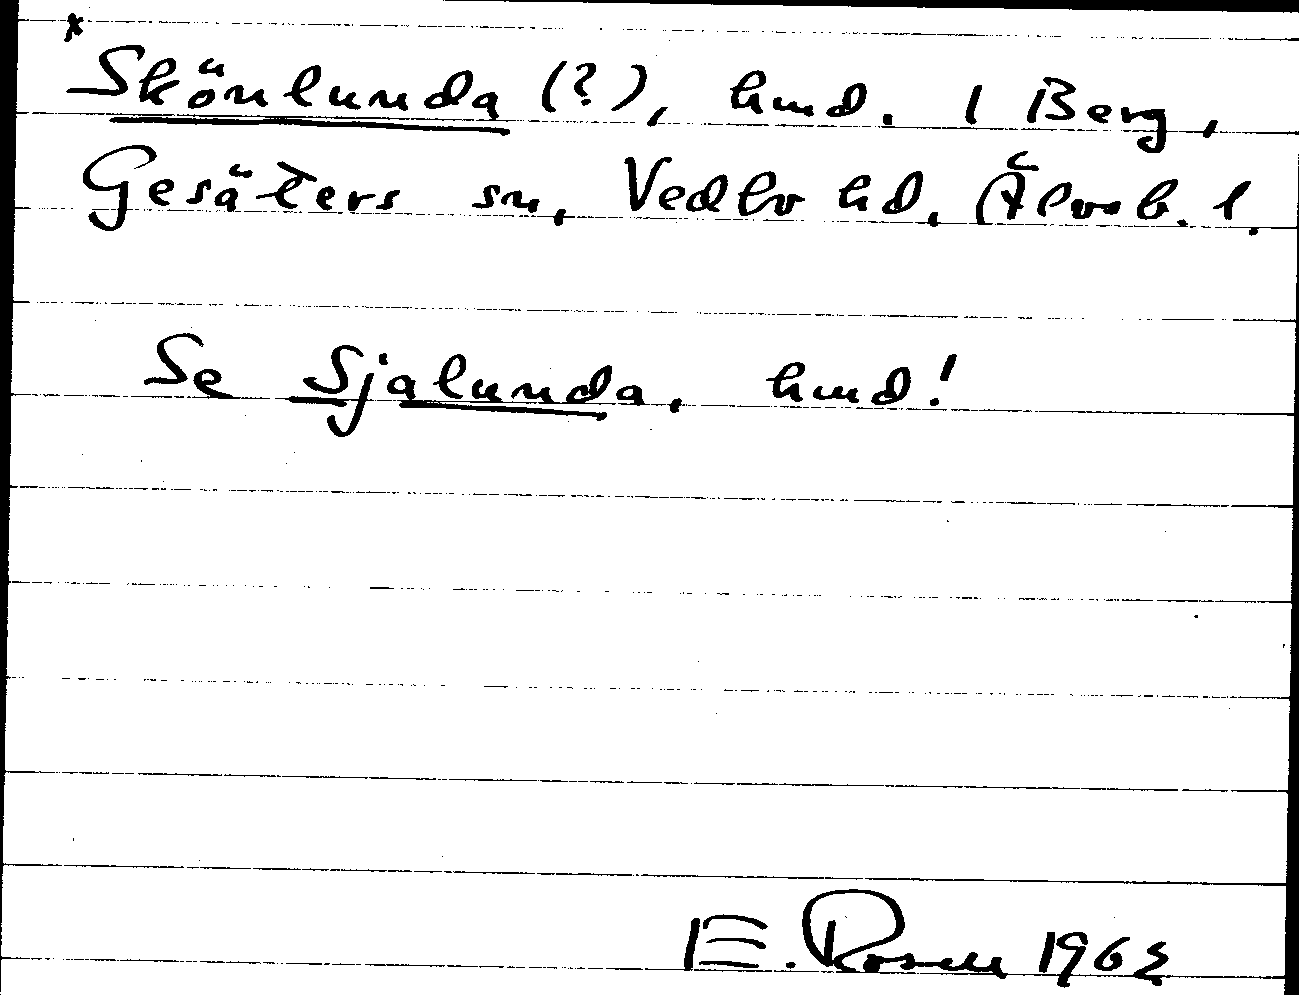 * Skönlunda (?), hmd. 1 Berg,
Gesäters sn, Vedbo hd, Älvsb. l.
Se Sjalunda, hmd!
E. Rosen 1962